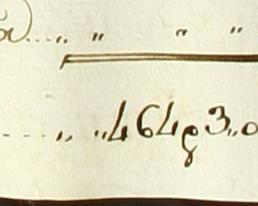 a.... „ " " "
.... „ „46483„0